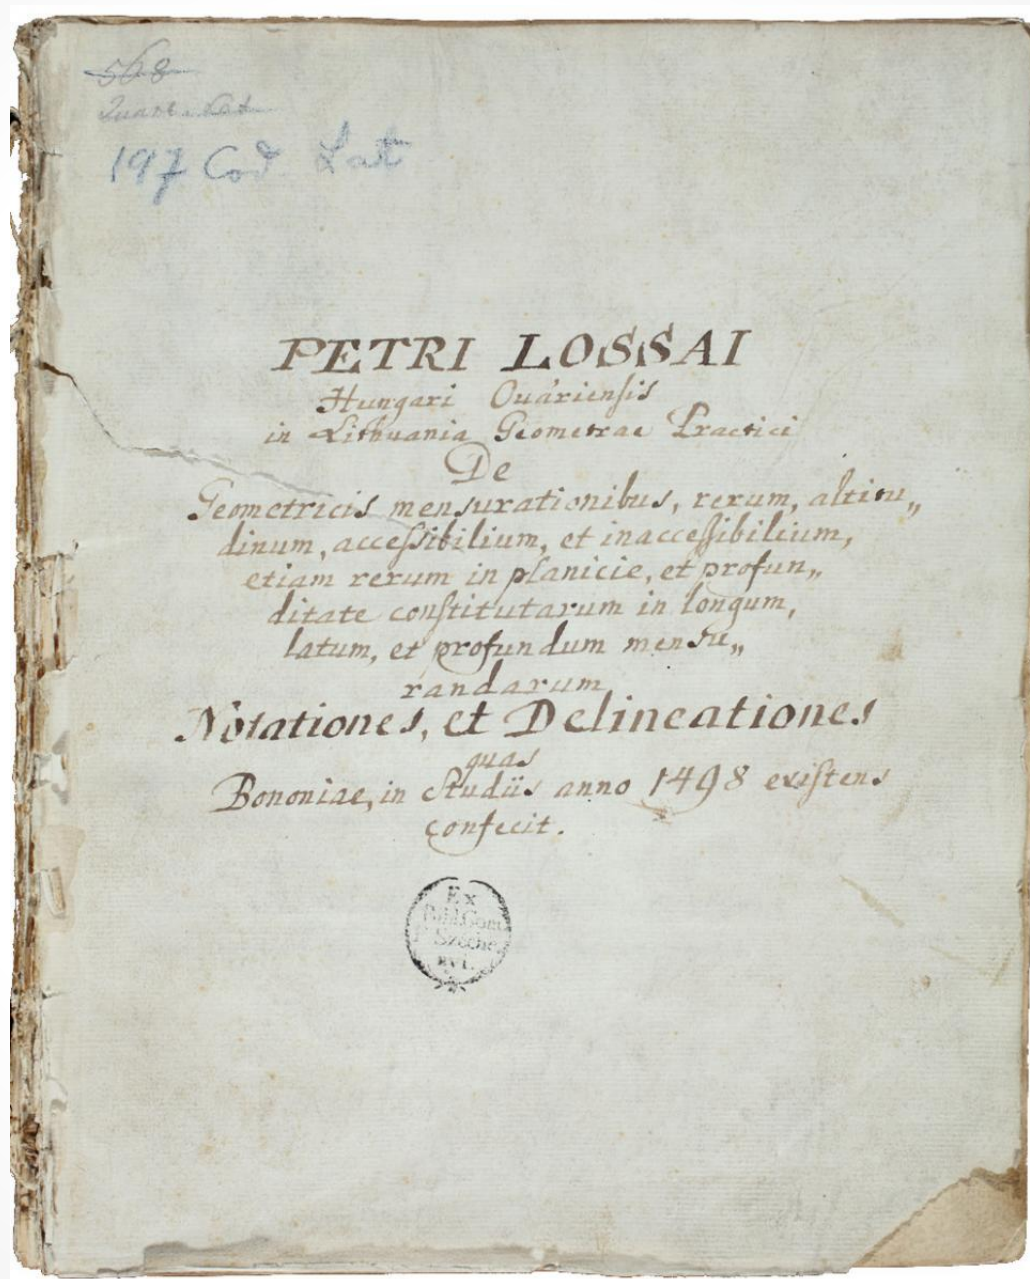 568
Quart. Lat.
197 Cod. Lat
PETRI LOSSAI
Hungari Ouáriensis
in Lithuania Geometrae Practici
De
Geometricis mensurationibus, rerum, altitu„
dinum, accessibilium, et inaccessibilium,
etiam rerum in planicie, et profun„
ditate constitutarum in longum,
latum, et profundum mensu„
randarum
Notationes, et Delineationes
quas
Bononiae, in Studiis anno 1498 existens
confecit.
Ex
Bibl. Com.
F. Széché
nyi.